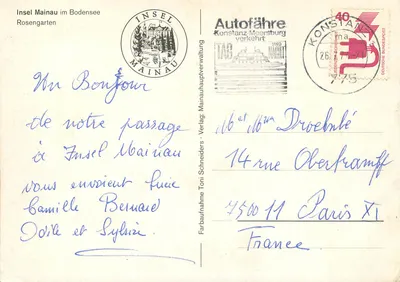 Insel Mainau im Bodensee
Rosengarten
INSEL
MAINAU
Autofähre
Konstanz-Meersburg
verkehrt
TAG
KONSTANZ
ma
775
40
DEUTSCHE BUNDESPOST
Farbaufnahme Toni Schneiders · Verlag: Mainauhauptverwaltung
Un Bonjour
de notre passage
à Insel Mainau
vous envoient
Camille Bernard
Odile et Sylvie
14 rue Oberkampf
75011 Paris XI
France